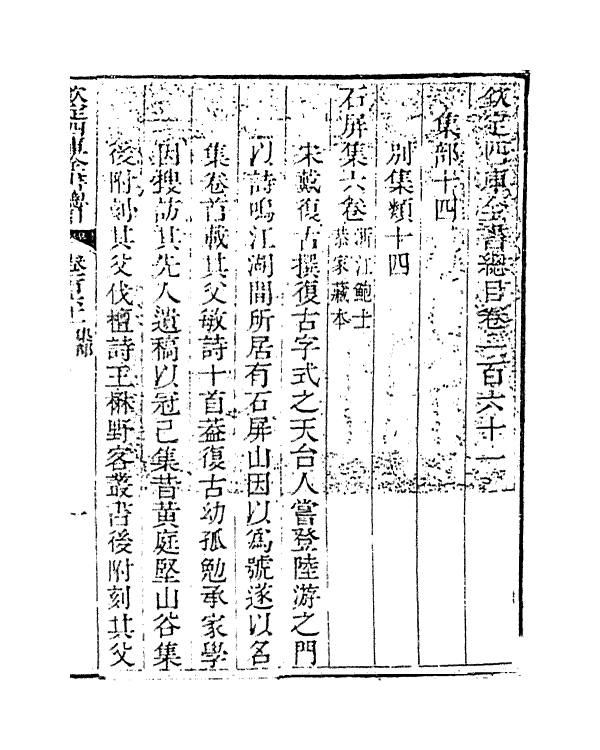 欽定四庫全書總目卷一百六十一
集部十四
別集類十四
石屏集六卷浙江鮑士恭家藏本
宋戴復古撰復古字式之天台人嘗登陸游之門
以詩鳴江湖間所居有石屏山因以爲號遂以名
集卷首載其父敏詩十首葢復古幼孤勉承家學
因搜訪其先人遺稿以冠己集昔黃庭堅山谷集
後附刻其父伐檀詩王楙野客叢書後附刻其父
欽定四庫全書總目 卷一百六十一 集部 一